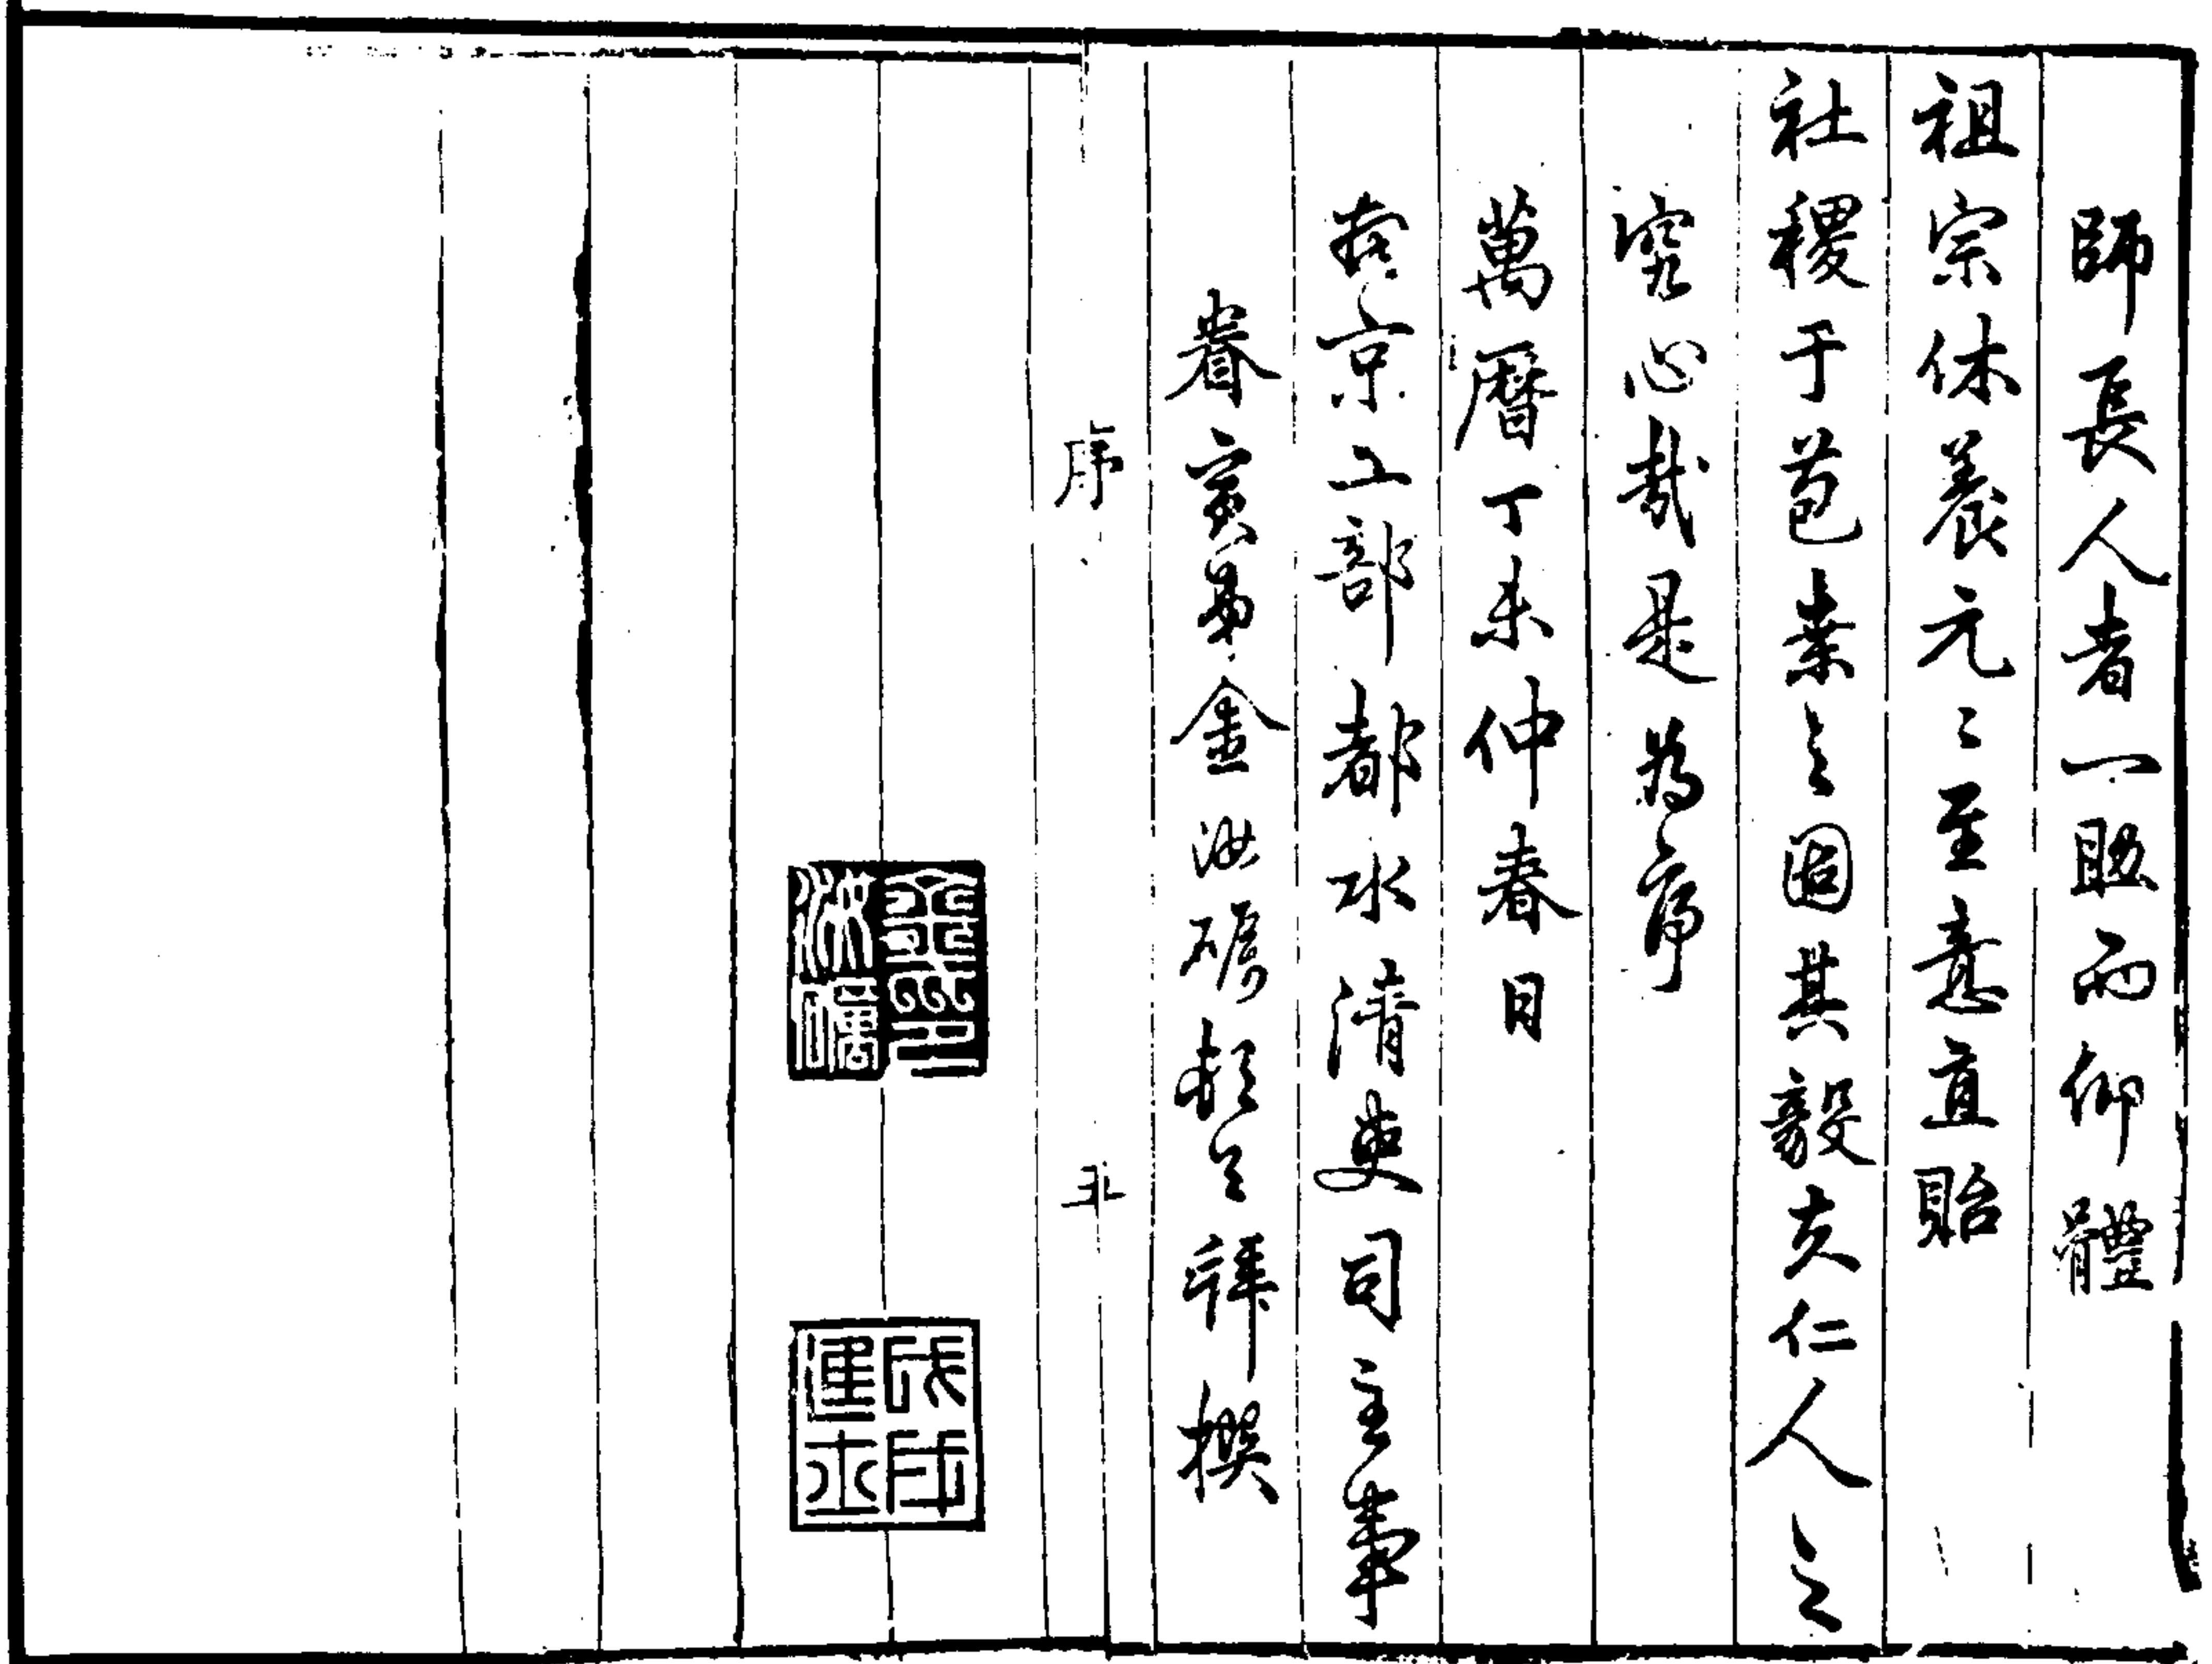 師長人者一而仰體
祖宗休養元〻至意直貽
社稷于苞桑之固其毅夫仁人之
究心哉是為序
萬曆丁未仲春日
南京工部都水清吏司主事
眷寅弟金汝礪頓首拜撰
序
五
金汝礪印
戊戌進士